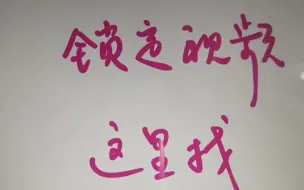 锁定视频
这里找